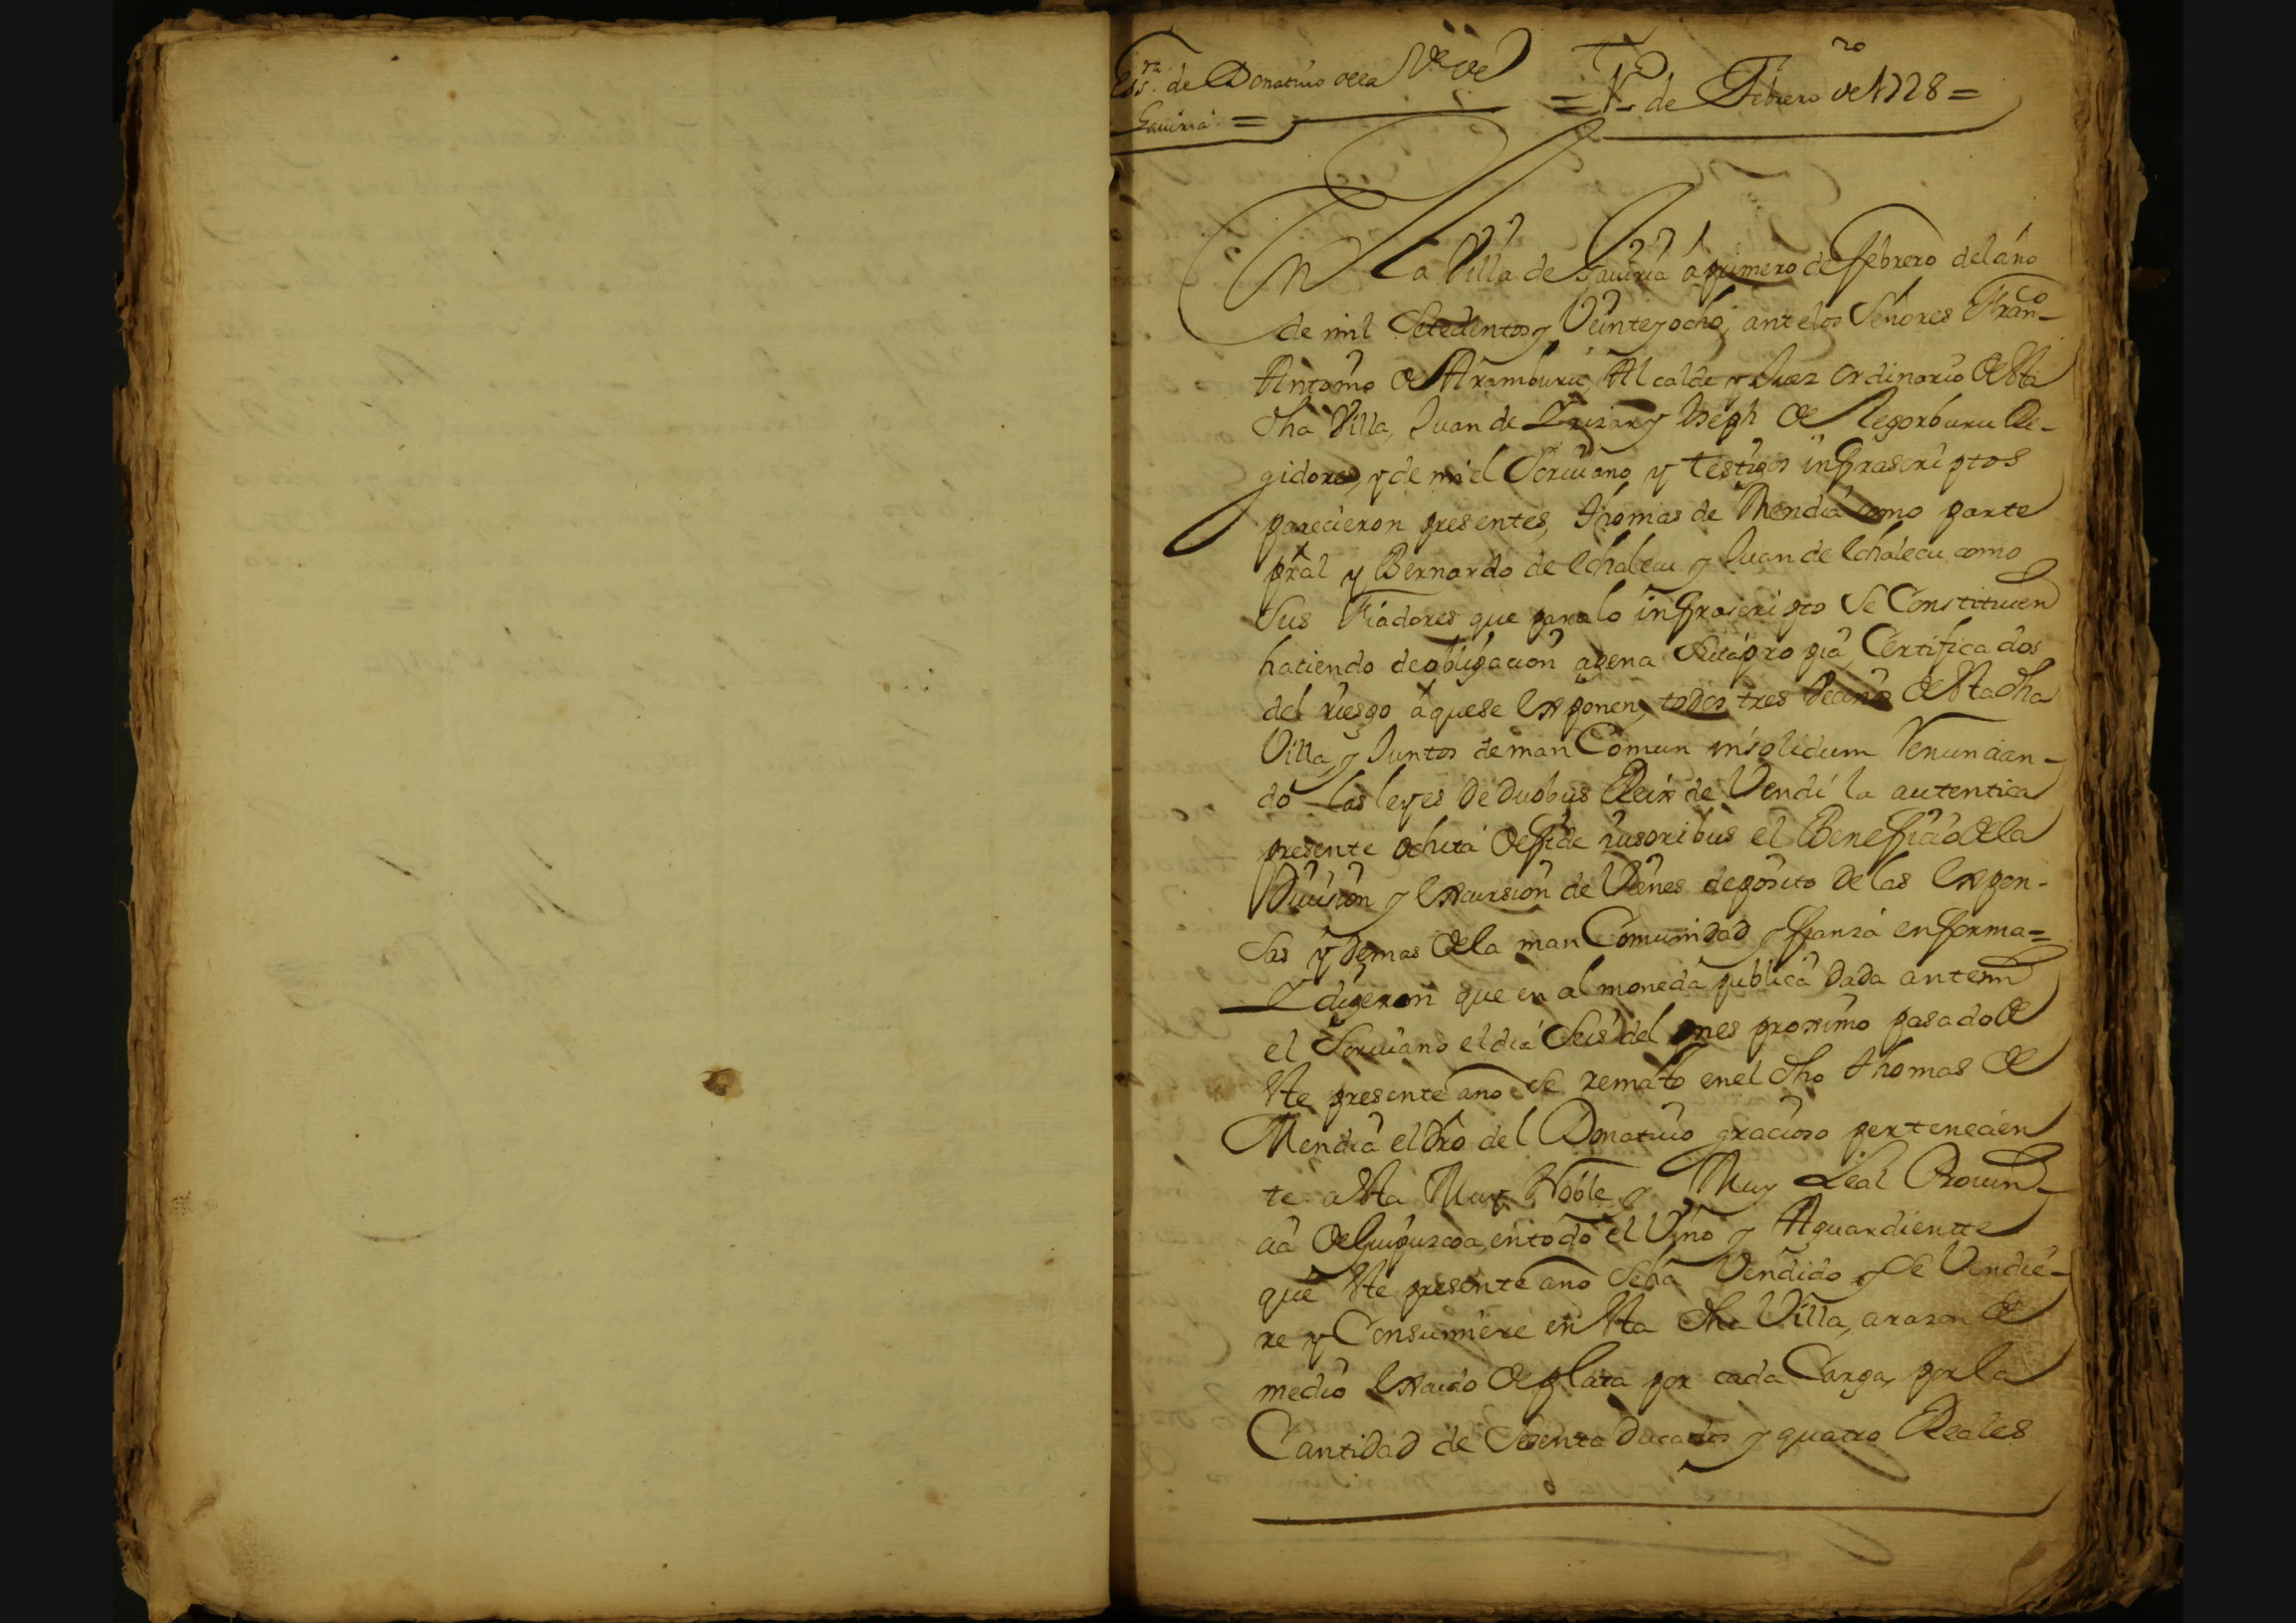 Essra. de Donativo dela Va. de
Gaviria =
= 1º de Febrero de 1728 =
En La Villa de Gaviria a primero de febrero del año
de mil Setecientos y Veinte y ocho, ante los Señores Franco
Antonio de Aramburu, Alcalde y Juez ordinario desta
dha Villa, Juan de Yrizar y Joseph de Legorburu Re-
gidores, y de mi el Scriuano y testigos infrascriptos
parecieron presentes, thomas de Mendia como parte
pral y Bernardo de Echaleau y Juan de Echaleau como
Sus Fiadores que para lo infrascripto Se Constituien
haciendo de obligacion agena Suia propia, Certificados
del riesgo a que se Exponen, todos tres Vecinos desta dha
Villa, y Juntos de man Comun insolidum Renuncian-
do las leyes de duobus Reix de Vendi la autentica
presente ochita de fide iusoribus el Beneficio de la
Diuision y Excursion de Vienes deposito de las Expen-
sas y demas de la man Comunidad y fianza en forma =
Y digeron que en almoneda publica dada ante mi
el Scriuano el dia Seis del mes proximo pasado de
Este presente año Se remato en el dho thomas de
Mendia el dro del Donatiuo gracioso pertenecien
te a Esta Muy Noble y Muy Leal Prouin-
cia de Guipuzcoa, en todo el Vino y Aguardiente
que Este presente año Se ha Vendido y Se Vendie-
re y Consumiere en Esta dha Villa, a razon de
medio Escudo de plata por cada Carga, por la
Cantidad de Sesenta Ducados y quatro Reales